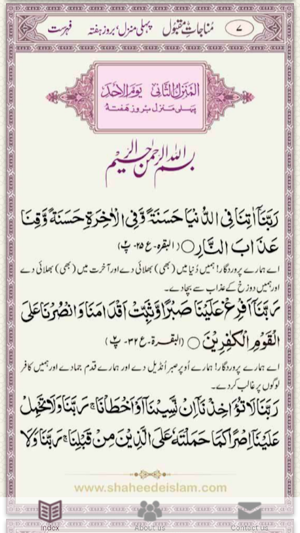 ۷ مُناجاتِ مقبُول پہلی منزل؛ بروز ہفتہ فہرست
المَنزلُ الثّانی یومُ الاَحَد
پہلی منزل بروز ہفتہ
بسم اللہ الرحمن الرحیم
رَبَّنَآ اٰتِنَا فِی الدُّنْیَا حَسَنَةً وَّفِی الْاٰخِرَةِ حَسَنَةً وَّقِنَا
عَذَابَ النَّارِ ○ (البقرہ-ع ۲۵- پ۲)
اے ہمارے پروردگار! ہمیں دُنیا میں (بھی) بھلائی دے اور آخرت میں (بھی) بھلائی دے
اور ہمیں دوزخ کے عذاب سے بچا دے۔
رَبَّنَآ اَفْرِغْ عَلَیْنَا صَبْرًا وَّثَبِّتْ اَقْدَامَنَا وَانْصُرْنَا عَلَی
الْقَوْمِ الْکٰفِرِیْنَ ○ (البقرة-ع ۳۲- پ۲)
اے ہمارے پروردگار! ہمارے اُوپر صبر اُنڈیل دے اور ہمارے قدم جمادے اور ہمیں کافر
لوگوں پر غالب کردے۔
رَبَّنَا لَا تُؤَاخِذْنَآ اِنْ نَّسِیْنَآ اَوْ اَخْطَاْنَا ۚ رَبَّنَا وَلَا تَحْمِلْ
عَلَیْنَآ اِصْرًا کَمَا حَمَلْتَهٗ عَلَی الَّذِیْنَ مِنْ قَبْلِنَا ۚ رَبَّنَا وَلَا
www.shaheedeislam.com
Index About us Contact us